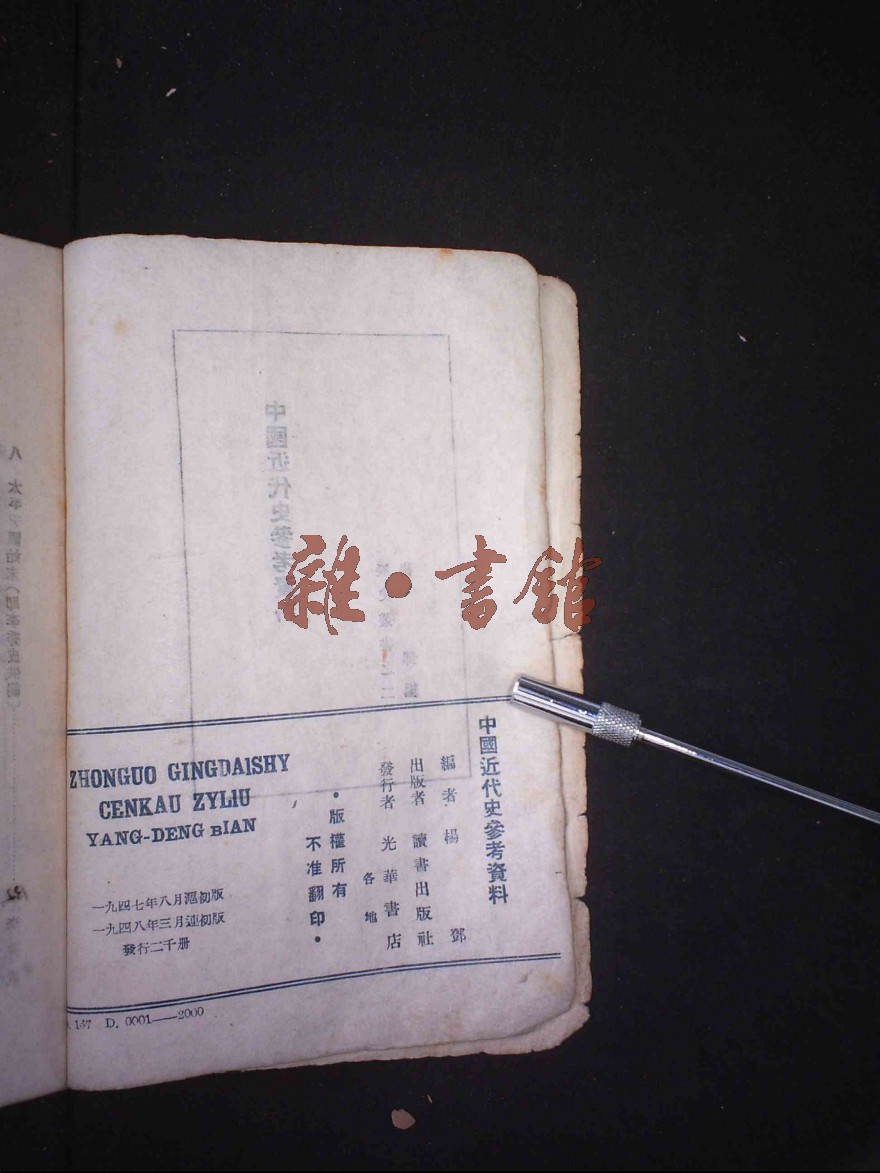 中國近代史參考資料
編者 楊 鄧
出版者 讀書出版社
發行者 光華書店
各地
·版權所有
不准翻印·
ZHONGUO GINGDAISHY
CENKAU ZYLIU
YANG-DENG BIAN
一九四七年八月滬初版
一九四八年三月連初版
發行二千册
137 D. 0001——2000
中國近代史參考
雜·書館